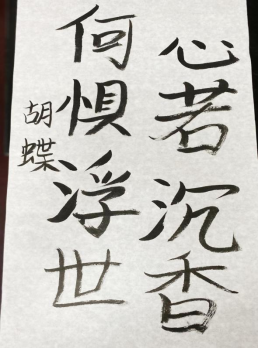 心若沉香
何惧浮世
胡蝶